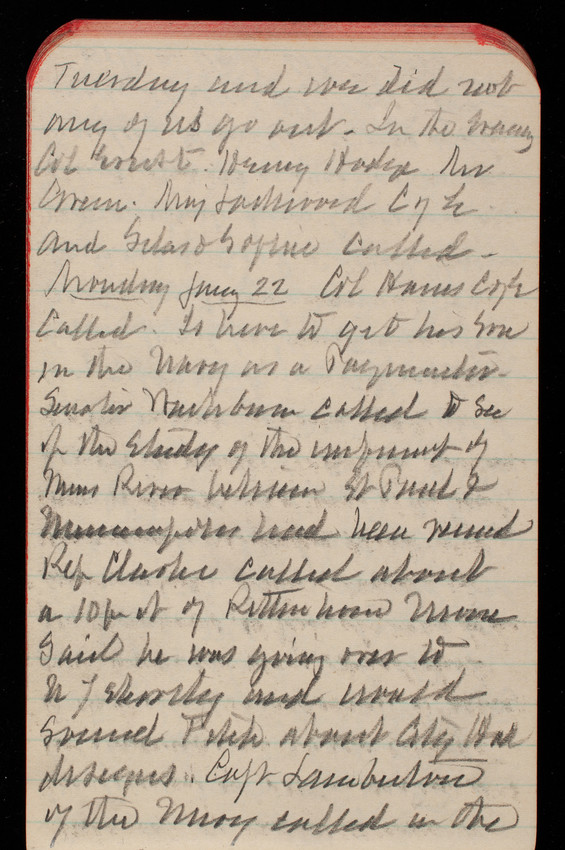 Tuesday and we did not
any of us go out. In the Evening
Col Ernst. Henry Hodge Mr
Green. Maj Lockwood Coyle
and Sophie called.
Monday Jany 22 Col Hains Coyle
called. To have to get his Son
in the Navy as a Paymaster.
Senator Washburn called to see
if the Study of the imprment of
Miss River between St Paul &
Minneapolis had been recied
Rep Clarke called about
a 10 of Rittenhouse Moore
Said he was going over to
N Y shortly and would
Sound Post about City Hall
designs. Capt Lamberton
of the Navy called in the